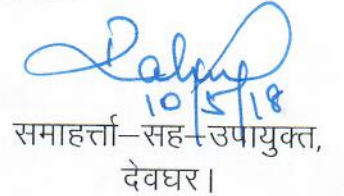 10/5/18
समाहर्त्ता–सह–उपायुक्त,
देवघर।